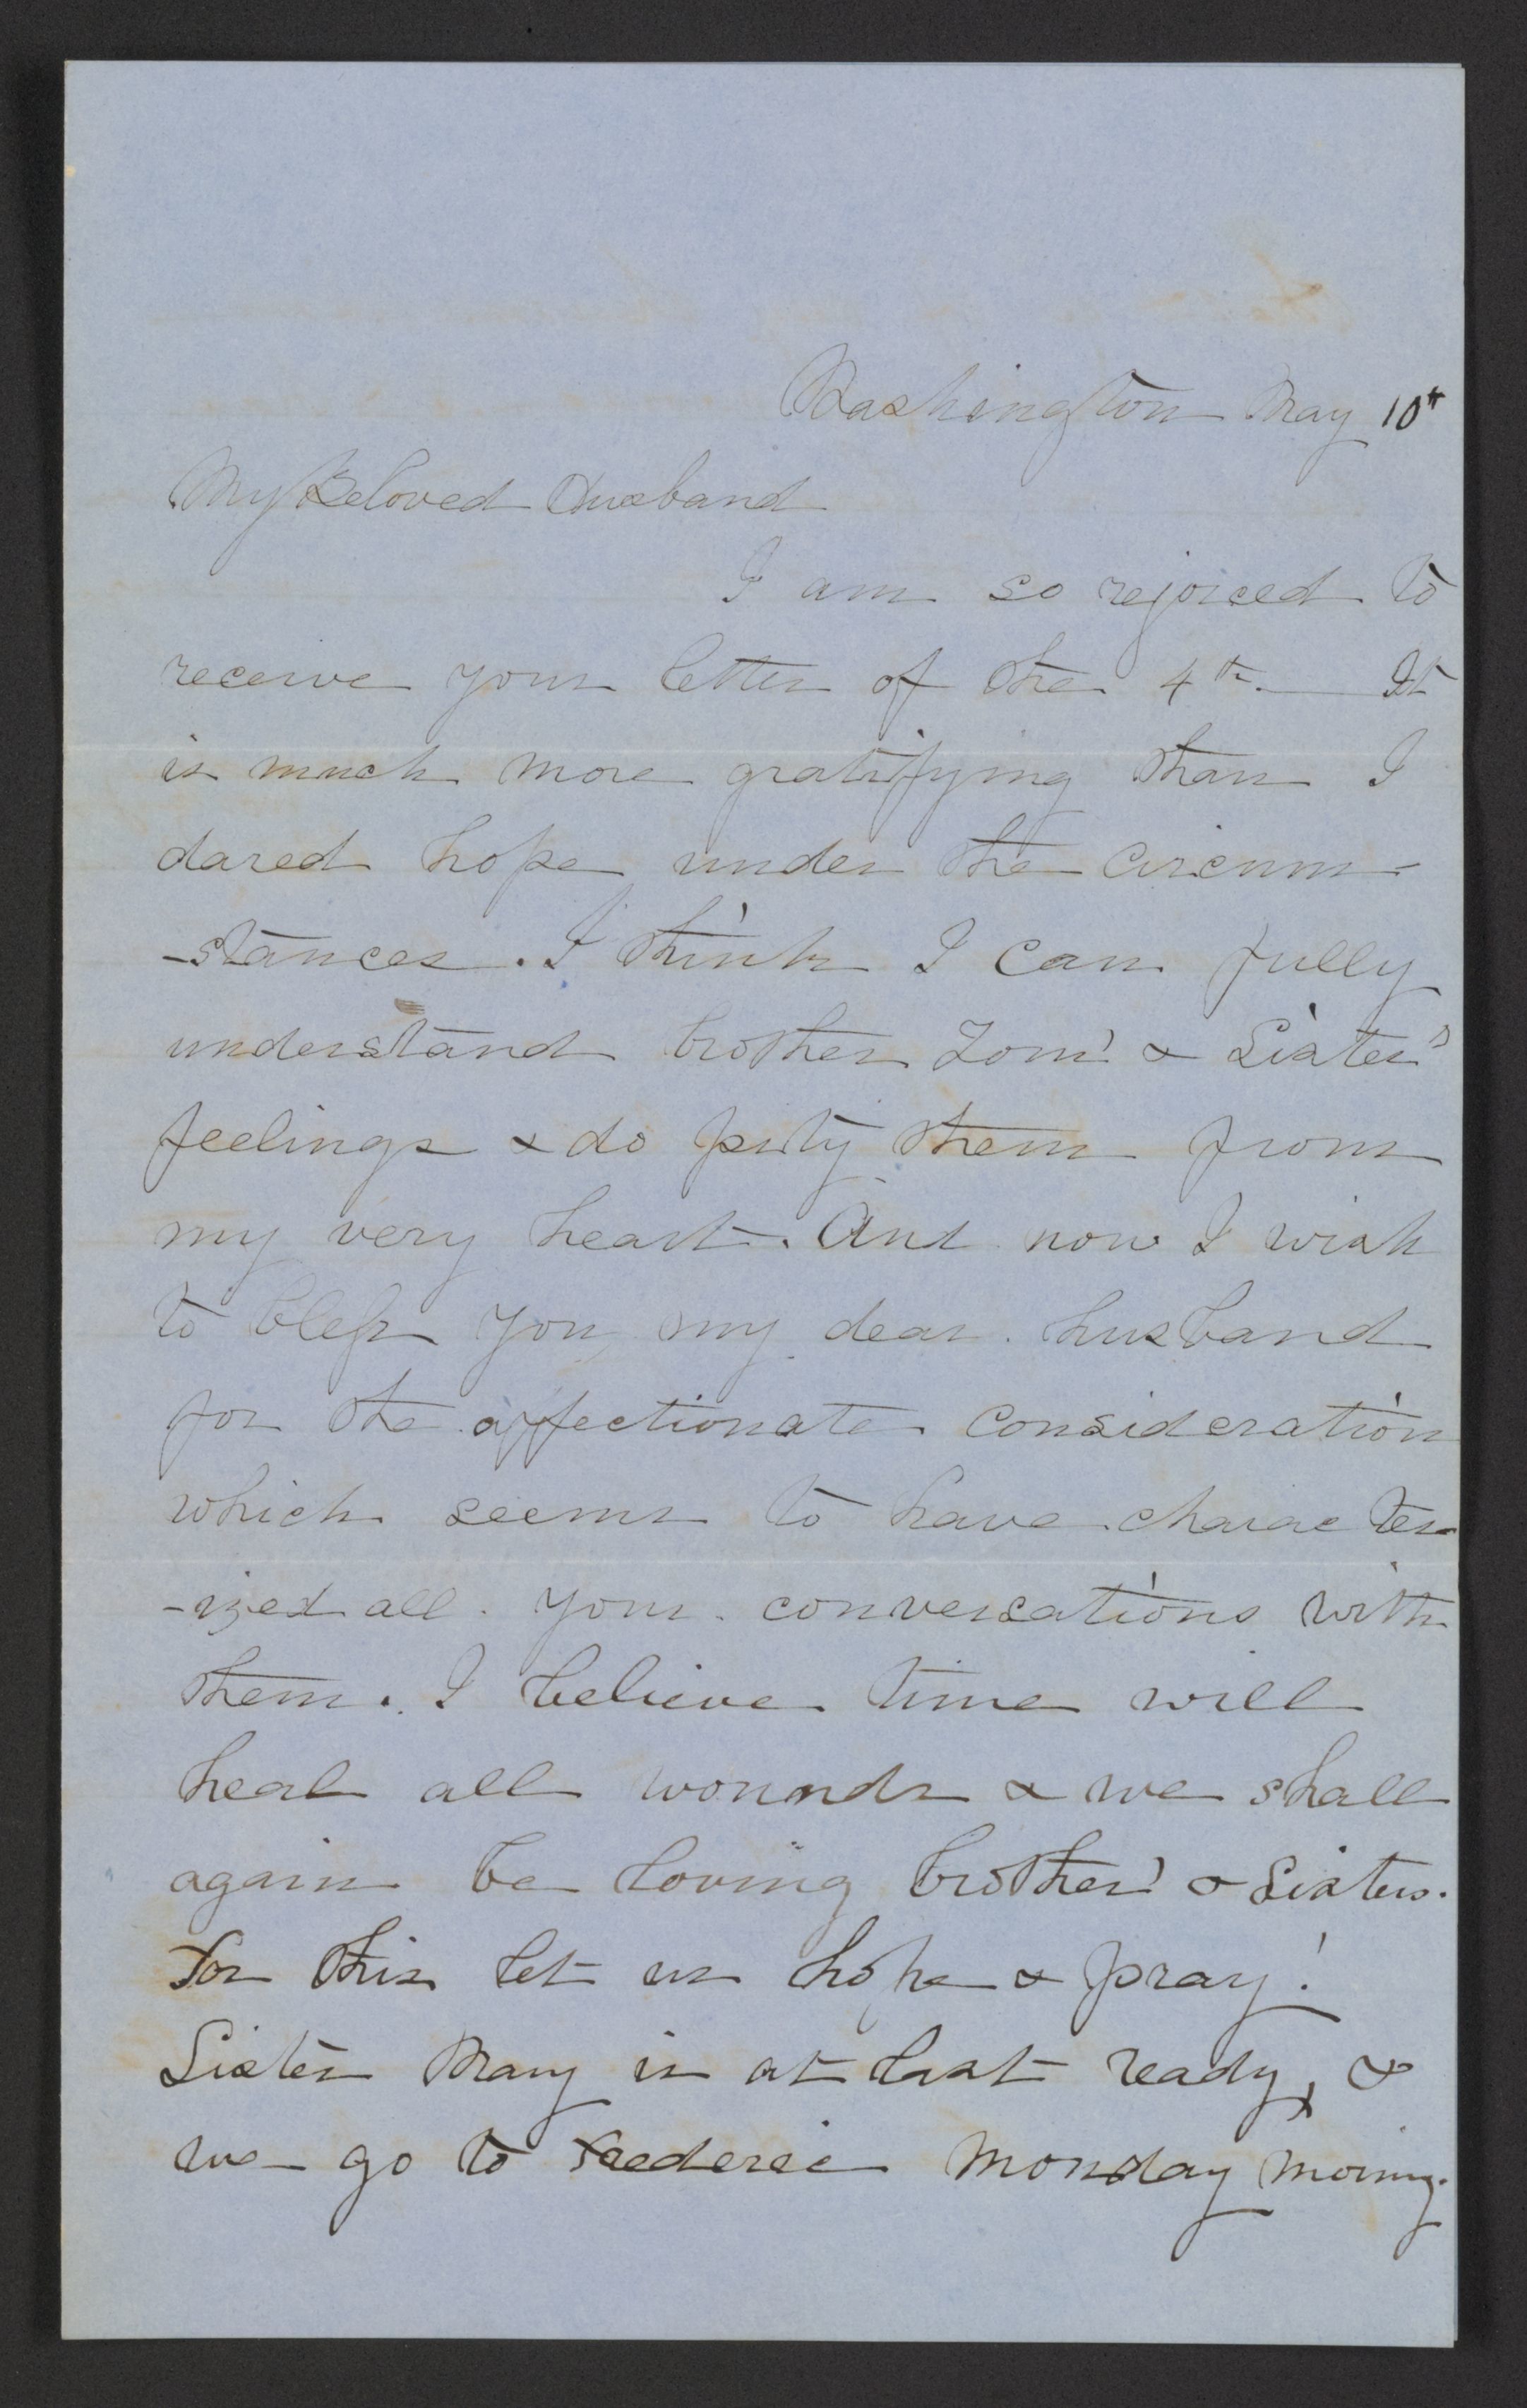 Washington May 10th
My Beloved Husband
I am so rejoiced to
receive your letter of the 4th. It
is much more gratifying than I
dared hope under the circum-
-stances. I think I can fully
understand brother Tom's & Sister's
feelings & do pity them from
my very heart. And now I wish
to bless you, my dear husband
for the affectionate consideration
which seems to have character
-ized all your conversations with
them. I believe time will
heal all wounds & we shall
again be loving brothers & Sisters.
For this let us hope & pray!
Sister Mary is at last ready, &
we go to Frederic Monday morning.